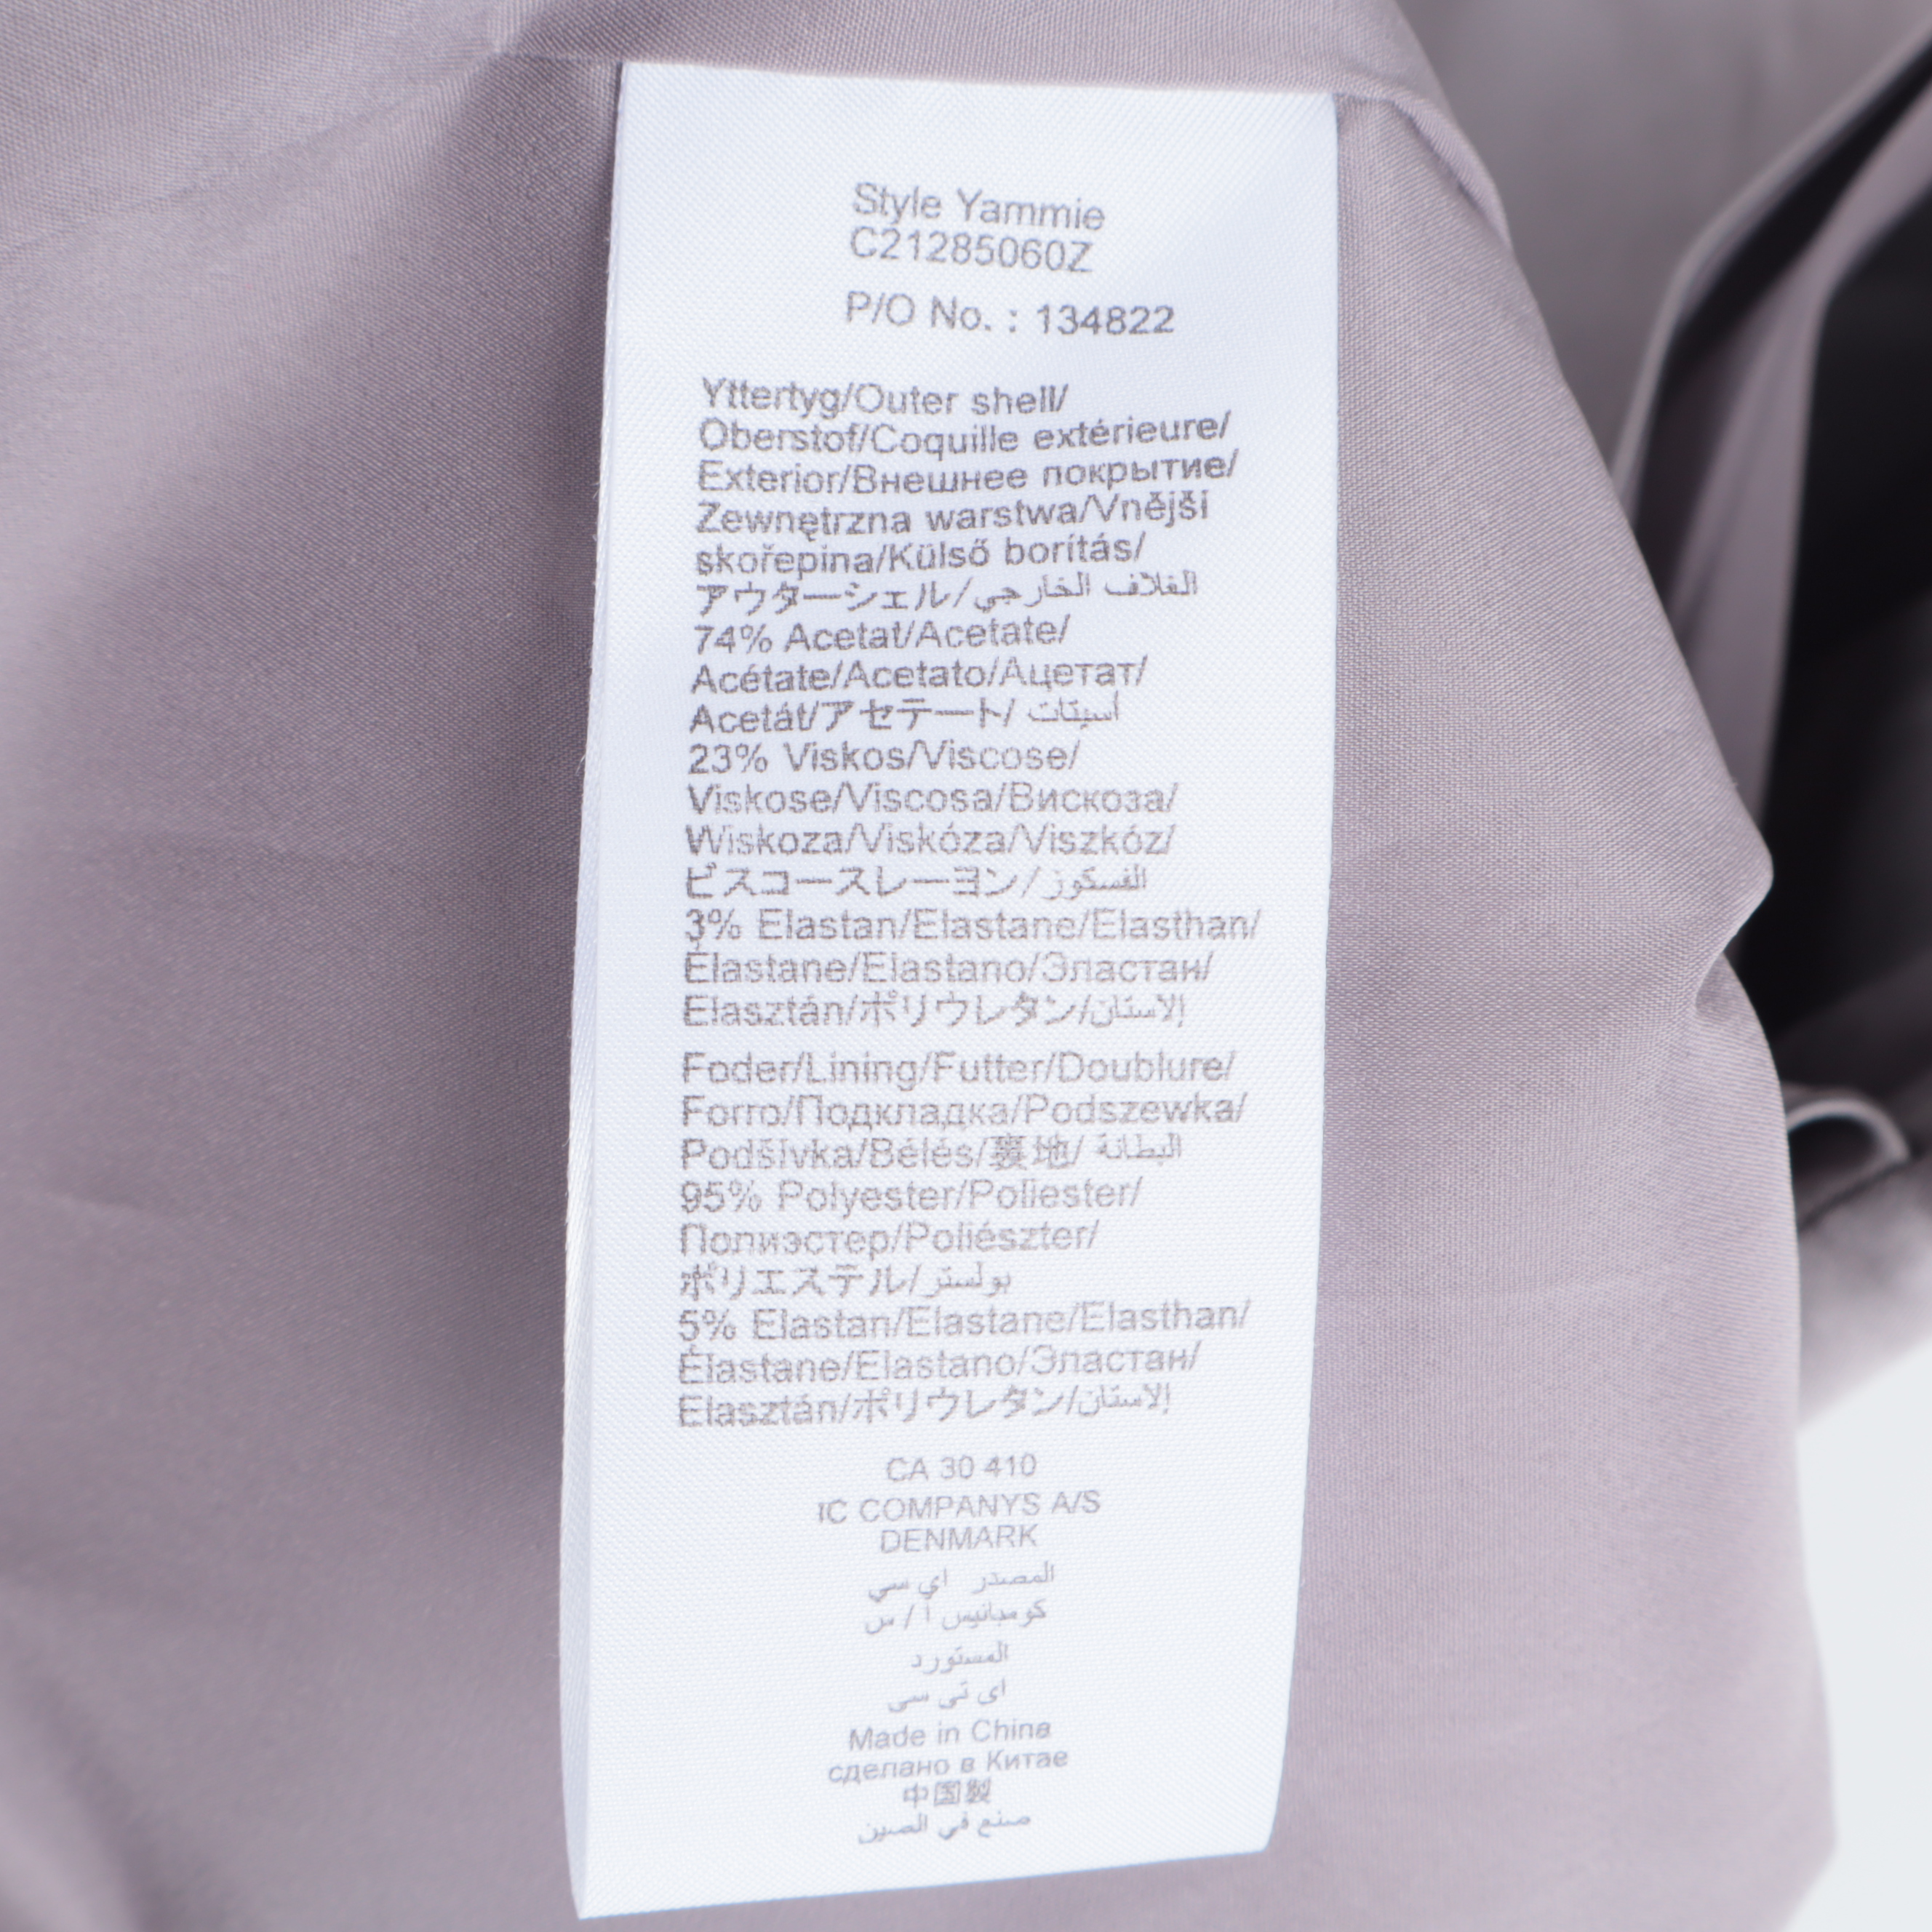 Style Yammie
C21285060Z
P/O No. : 134822
Yttertyg/Outer shell/
Oberstof/Coquille extérieure/
Exterior/Внешнее покрытие/
Zewnętrzna warstwa/Vnější
skořepina/Külső borítás/
アウターシェル/الغلاف الخارجي
74% Acetat/Acetate/
Acétate/Acetato/Ацетат/
Acetát/アセテート/ أسيتات
23% Viskos/Viscose/
Viskose/Viscosa/Вискоза/
Wiskoza/Viskóza/Viszkóz/
ビスコースレーヨン/الفسكوز
3% Elastan/Elastane/Elasthan/
Élastane/Elastano/Эластан/
Elasztán/ポリウレタン/إلاستان
Foder/Lining/Futter/Doublure/
Forro/Подкладка/Podszewka/
Podšívka/Bélés/裏地/ البطانة
95% Polyester/Poliester/
Полиэстер/Poliészter/
ポリエステル/بولستر
5% Elastan/Elastane/Elasthan/
Élastane/Elastano/Эластан/
Elasztán/ポリウレタン/إلاستان
CA 30 410
IC COMPANYS A/S
DENMARK
المصدر اي سي
كومبانيس أ / س
المستورد
اى تى سى
Made in China
сделано в Китае
中国製
صنع في الصين